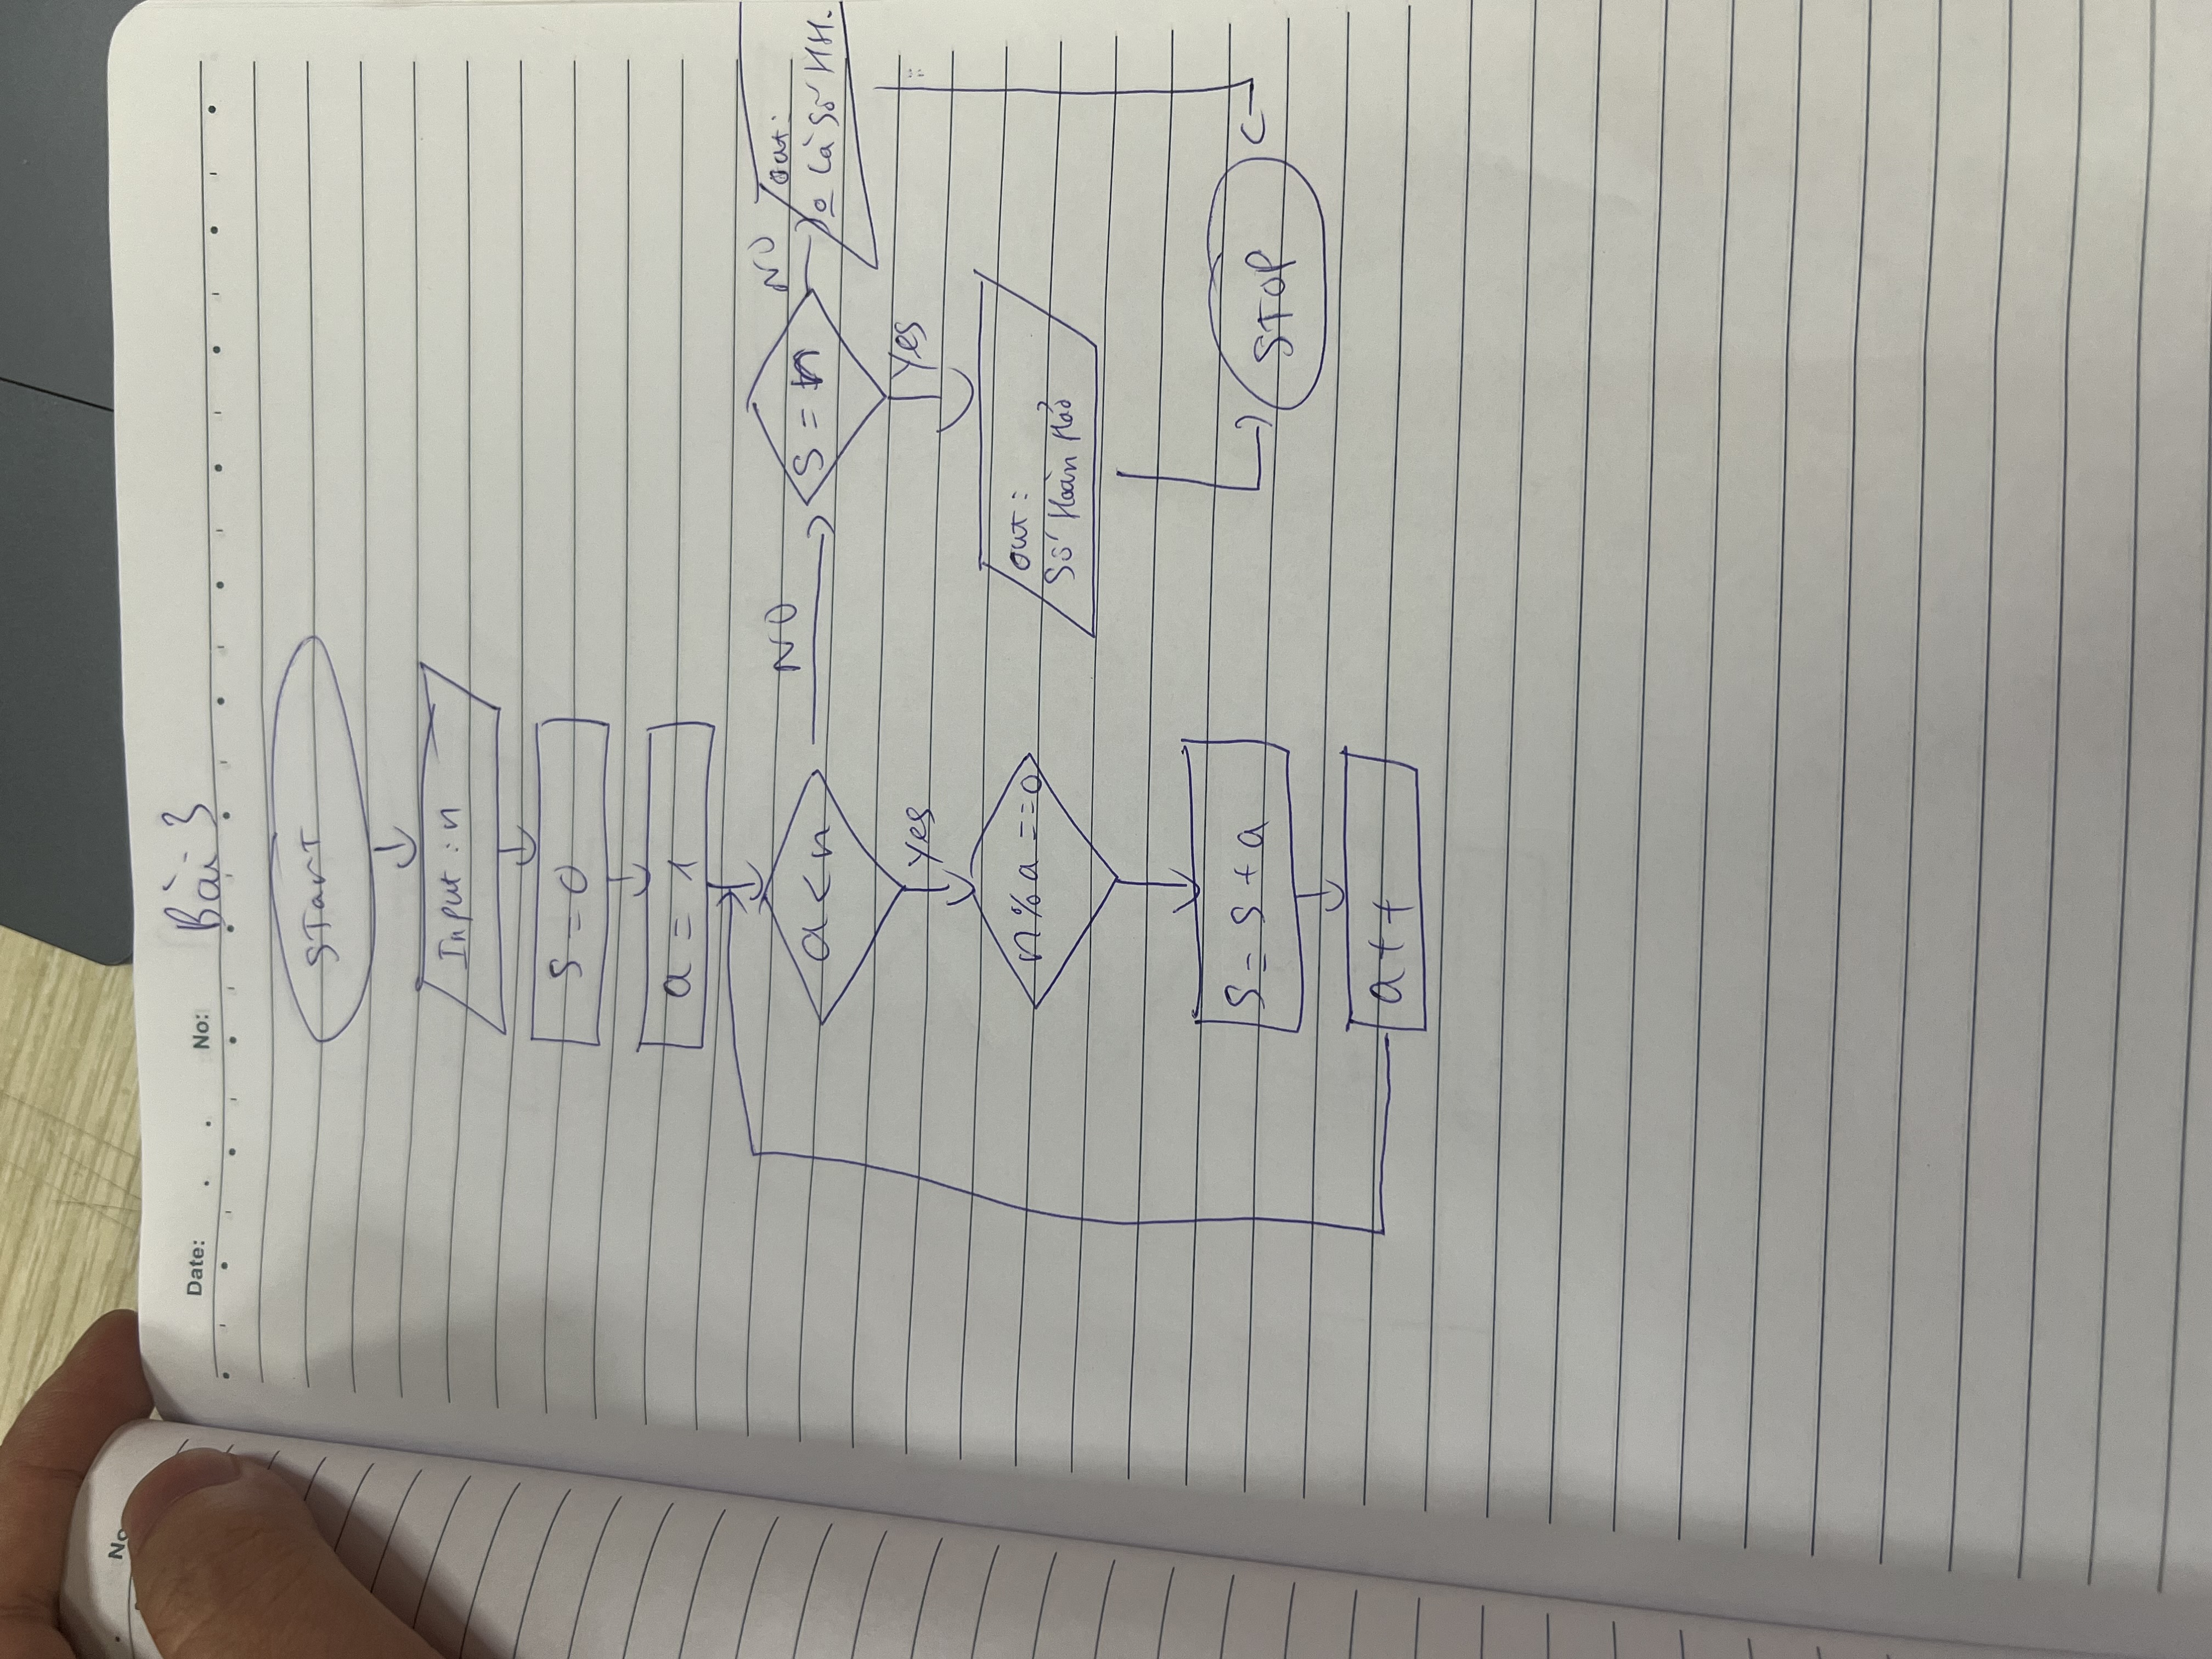 No
Date: . . No: Bài 3
Start
Input : n
S = 0
a = 1
a < n
NO
S = n
NO
out:
o là Số HH.
yes
yes
n % a == 0
out:
Số Hoàn Hảo
S = S + a
STOP
a++